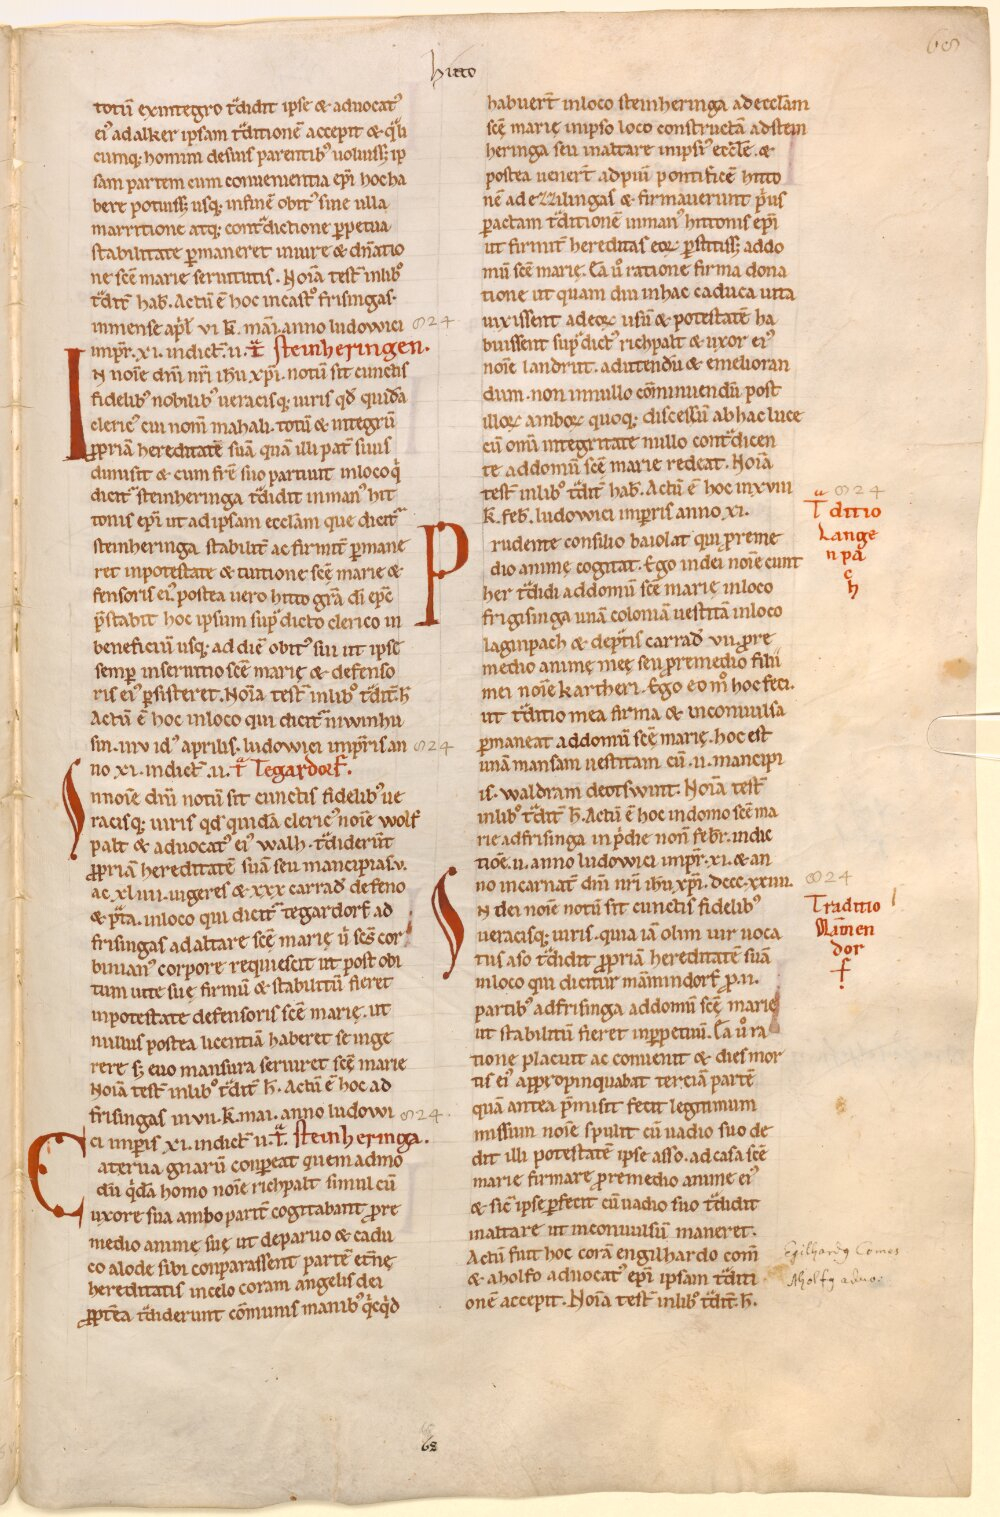 hitto
totū exintegro t̄didit ipse & aduocat᷒
ei᷒ adalker ipsam t̄ditionē accepit & q̄li
cumq; homini desuis parentib᷒ uoluiss; ip
sam partem cum conuenientia ep̄i hoc ha
bere potuiss; usq; infinē obit᷒ sine ulla
marritione atq; cont̄dictione ꝑpetua
stabilitate ꝑmaneret iniure & dn̄atio
ne sc̄ę marie seruitutis. Noīa test̄ inlib᷒
t̄dit̄ hab̄. Actū ē hoc incast᷒ frisingas.
inmense ap̄l vi k̄. mai. anno ludowici 824
imp̄r. xi. indict̄. ii. t̄ Steinheringen.
IN noīe dn̄i nr̄i ih̄u xp̄i. notū sit cunctis
fidelib᷒ nobilib᷒ ueracisq; uiris qd̄ quidā
cleric᷒ cui nom̄ mahali. totū & integrū
ꝓpriā hereditatē suā quā illi pat̄ suus
dimisit & cum fr̄e suo partiuit inloco q̄
dicit᷒ steinheringa t̄didit inman᷒ hit
tonis ep̄i ut adipsam eccłam que dicit᷒
steinheringa stabilit̄ ac firmit̄ ꝑmane
ret inpotestate & tuitione sc̄ę marie &
fensoris ei᷒. postea uero hitto grā dī ep̄c
p̄stabit hoc ipsum sup̄dicto clerico in
beneficiū usq; addiē obit᷒ sui ut ipse
semp̄ inseruitio sc̄ę marię & defenso
ris ei᷒ ꝑsisteret. Noīa test̄ inlib᷒ t̄dit̄. h̄
Actū ē hoc inloco qui dicit᷒ niwinhu
sin. iii v id᷒ aprilis. ludowici imp̄ris an 824
no xi. indict̄. ii. t̄ Tegardorf.
Innoīe dn̄i notū sit cunctis fidelib᷒ ue
racisq; uiris qd̄ quidā cleric᷒ noīe wolf
palt & aduocat᷒ ei᷒ walh. t̄diderūt
ꝓpriā hereditatē suā seu mancipias. v.
ac xl iiii. iugeres & xxx carrad̄ defeno
& p̄ta. inloco qui dicit᷒ tegardorf ad
frisingas adaltare sc̄ę marię ū sc̄s cor
binian᷒ corpore requiescit ut post obi
tum uite suę firmū & stabilitū fieret
inpotestate defensoris sc̄ę marię. ut
nullus postea licentiā haberet se inge
rere s; euo mansura seruiret sc̄ę marie
Noīa test̄ inlib᷒ t̄dit̄ h̄. Actū ē hoc ad
frisingas in vii. k. mai. anno ludowi 824.
ci imp̄is xi. indict̄ ii. t̄. Steinheringa.
Caterua gnarū conpeat quem admo
dū q̄dā homo noīe richpalt simul cū
uxore sua ambo parit̄ cogitabant ꝓ re
medio animę suę ut deparuo & cadu
co alode sibi conparassent partē et̄nę
hereditatis incelo coram angelis dei
ꝓpt̄ea t̄diderunt cōmunis manib᷒ q̄cq̄d
habuer̄t inloco steinheringa adecclām
sc̄ę marię inipso loco constructā adstein
heringa seu inaltare impsi᷒ ecclē. &
postea uener̄t adpiū pontificē hitto
nē ad ezzilingas & firmauerunt p̄us
ꝑactam t̄ditionē inman᷒ hittonis ep̄i
ut firmit̄ hereditas eoꝝ ꝑstitiss; addo
mū sc̄ę marię. Ea ū ratione firma dona
tione ut quam diu inhac caduca uita
uixissent adeoꝝ usū & potestatē ha
buissent sup̄dict᷒ richpalt & uxor ei᷒
noīe landrut. adutendū & emelioran
dum. non innullo cōminuendū post
illoꝝ amboꝝ quoq; discessū abhac luce
cū omī integritate nullo cont̄dicen
te addomū sc̄ę marie redeat. Noīa
test̄ inlib᷒ t̄dit̄ hab̄. Actū ē hoc inxviii
k. feb̄. ludowici imp̄ris anno xi. 824
T̄ditio
Lange
npa
c
h
Prudente consilio baiolat qui ꝓreme
dio animę cogitat. Ego indei noīe cunt
her t̄didi addomū sc̄ę marię inloco
frigisinga unā coloniā uestitā inloco
laginpach & dep̄tis carrad̄ vii. ꝓre
medio animę meę seu ꝓremedio filii
mei noīe kartheri. Ego eo m̊ hoc feci.
ut t̄ditio mea firma & inconuulsa
ꝑmaneat addomū sc̄ę marię. hoc est
unā mansam uestitam cū. ii. mancipi
is. waldram deotswint. Noīa test̄
inlib᷒ t̄dit̄ h̄. Actū ē hoc indomo sc̄ę ma
rie adfrisinga in p̄die non̄ febr̄. indic
tiōe. ii. anno ludowici imp̄r. xi. & an
no incarnat̄ dn̄i nr̄i ih̄u xp̄i. dccc.xxiiii. 824
Traditio
Mam̄en
dor
f.
IN dei noīe notū sit cunctis fidelib᷒
ueracisq; uiris. quia iā olim uir uoca
tus aso t̄didit ꝓpriā hereditatē suā
inloco qui dicitur mām̄indorf ꝓ. ii.
partib᷒ adfrisinga addomū sc̄ę marię
ut stabilitū fieret inꝑpetuū. Ea ū ra
tione placuit ac conuenit & dies mor
tis ei᷒ appropinquabat terciam partē
quā antea p̄misit fecit legitimum
missum noīe spulit cū uadio suo de
dit illi potestatē ipse asso. adcasa sc̄ę
marie firmare ꝓremedio anime ei᷒
& sic᷒ ipse ꝑfecit cū uadio suo t̄didit
inaltare ut inconuulsū maneret.
Actū fuit hoc corā engilhardo com̄
& aholfo aduocat᷒ ep̄i ipsam t̄diti
onē accepit. Noīa test̄ inlib᷒ t̄dit̄. h̄.
Egilhardq Comes
Aholfq aduo:
68